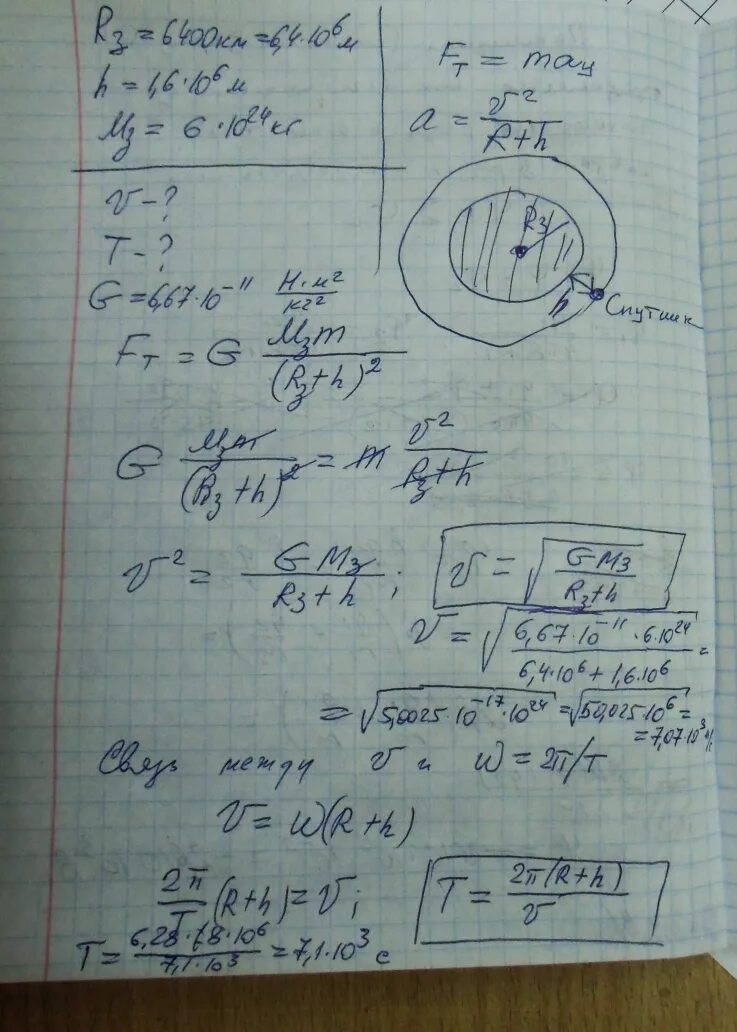 Rз = 6400км = 6,4·10⁶м
h = 1,6·10⁶м
Mз = 6·10²⁴кг
V-?
T-?
G = 6,67·10⁻¹¹ Н·м²/кг²
Fт = maц
a = v²/(R+h)
Rз
h
Спутник
Fт = G Mзm/(Rз+h)²
G Mзm/(Rз+h)² = m v²/(Rз+h)
v² = GMз/(Rз+h); v = √(GMз/(Rз+h))
v = √((6,67·10⁻¹¹·6·10²⁴)/(6,4·10⁶+1,6·10⁶)) =
= √(5,0025·10⁻¹⁷·10²⁴) = √(50,025·10⁶) =
= 7,07·10³ м/с
Связь между v и w = 2π/T
V = w(R+h)
2π/T (R+h) = v; T = 2π(R+h)/v
T = (6,28·8·10⁶)/(7,1·10³) = 7,1·10³ с